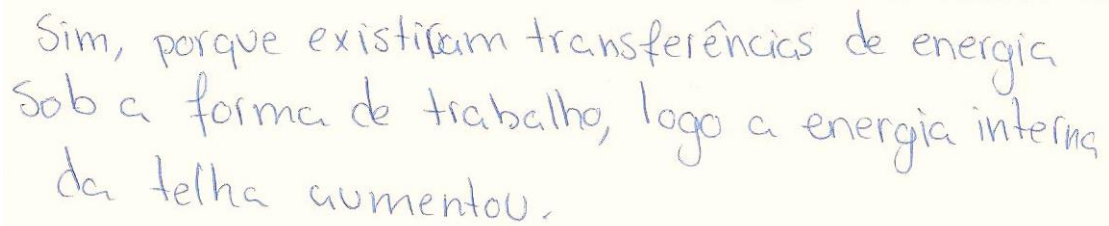 Sim, porque existiram transferências de energia
sob a forma de trabalho, logo a energia interna
da telha aumentou.